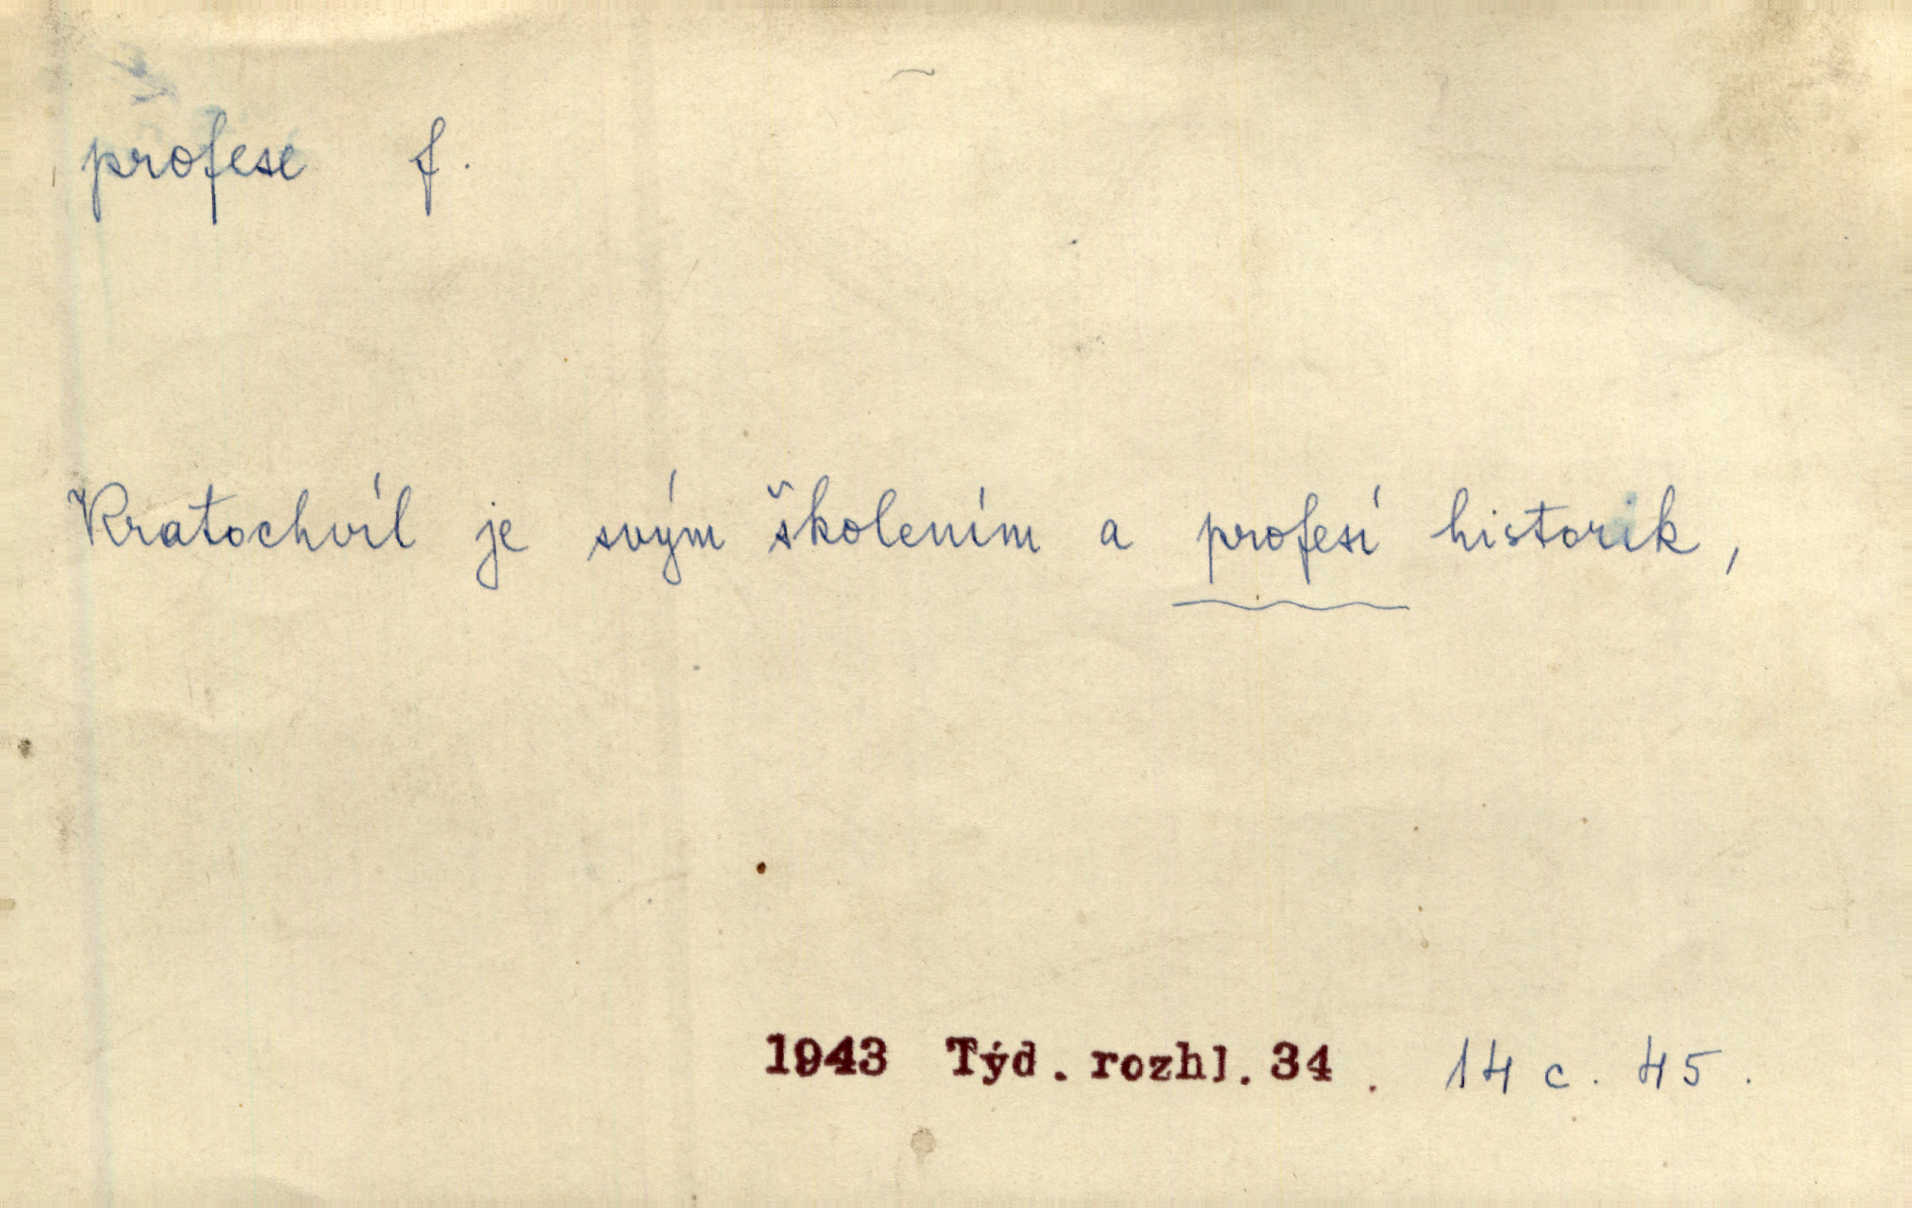 profese f.
Kratochvíl je svým školením a profesí historik,
1943 Týd. rozhl. 34. 14 c. 45.